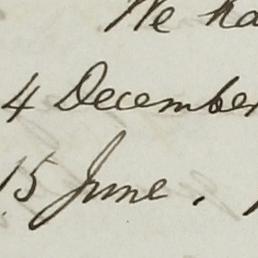 We ha
4 December
15 June.